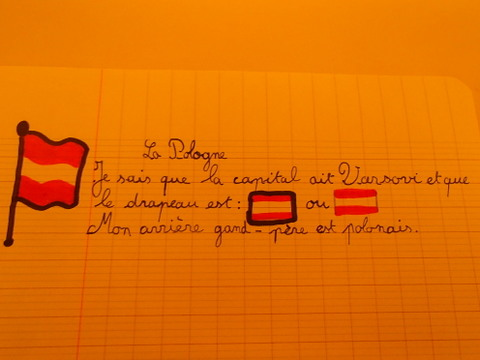 La Pologne
Je sais que la capital ait Varsovi et que
le drapeau est : ou
Mon arrière gand-père est polonais.